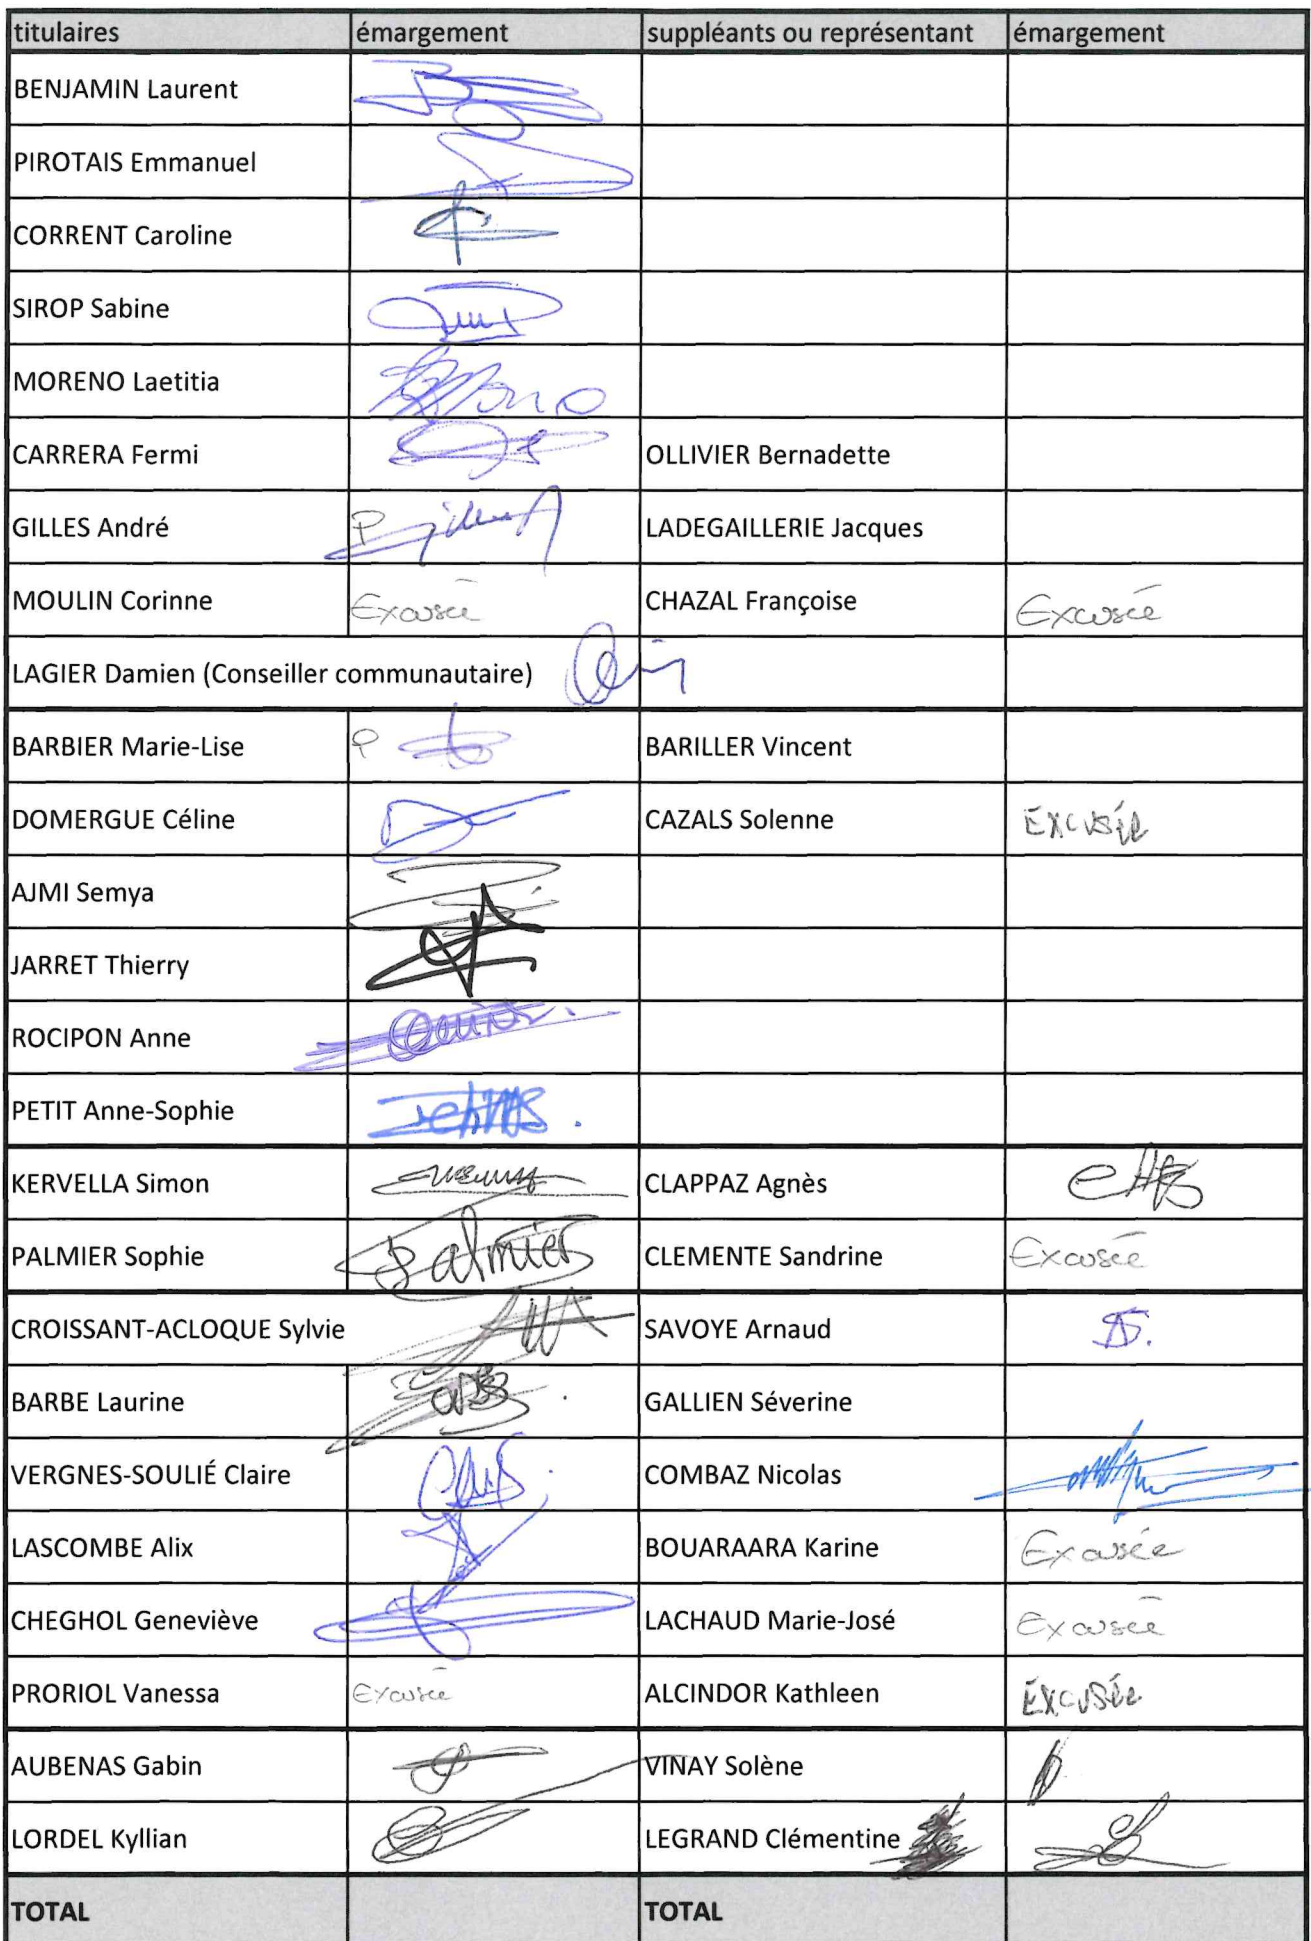 titulaires émargement suppléants ou représentant émargement
BENJAMIN Laurent
PIROTAIS Emmanuel
CORRENT Caroline
SIROP Sabine
MORENO Laetitia
CARRERA Fermi OLLIVIER Bernadette
GILLES André P LADEGAILLERIE Jacques
MOULIN Corinne Excusée CHAZAL Françoise Excusée
LAGIER Damien (Conseiller communautaire)
BARBIER Marie-Lise P BARILLER Vincent
DOMERGUE Céline CAZALS Solenne EXCUSÉE
AJMI Semya
JARRET Thierry
ROCIPON Anne
PETIT Anne-Sophie
KERVELLA Simon CLAPPAZ Agnès
PALMIER Sophie Palmier CLEMENTE Sandrine Excusée
CROISSANT-ACLOQUE Sylvie SAVOYE Arnaud
BARBE Laurine GALLIEN Séverine
VERGNES-SOULIÉ Claire COMBAZ Nicolas
LASCOMBE Alix BOUARAARA Karine Excusée
CHEGHOL Geneviève LACHAUD Marie-José Excusée
PRORIOL Vanessa Excusée ALCINDOR Kathleen EXCUSÉE
AUBENAS Gabin VINAY Solène
LORDEL Kyllian LEGRAND Clémentine
TOTAL TOTAL